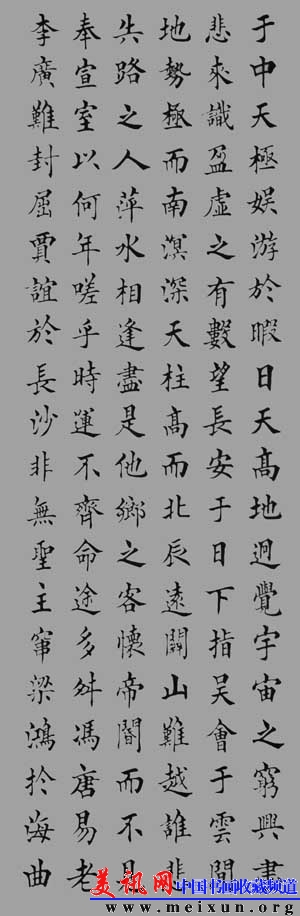 于中天極娛游於暇日天高地迥覺宇宙之窮興盡
悲來識盈虛之有數望長安于日下指吳會于雲間
地勢極而南溟深天柱高而北辰遠關山難越誰悲
失路之人萍水相逢盡是他鄉之客懷帝閽而不見
奉宣室以何年嗟乎時運不齊命途多舛馮唐易老
李廣難封屈賈誼於長沙非無聖主竄梁鴻於海曲
美讯网 中国书画收藏频道
www.meixun.net